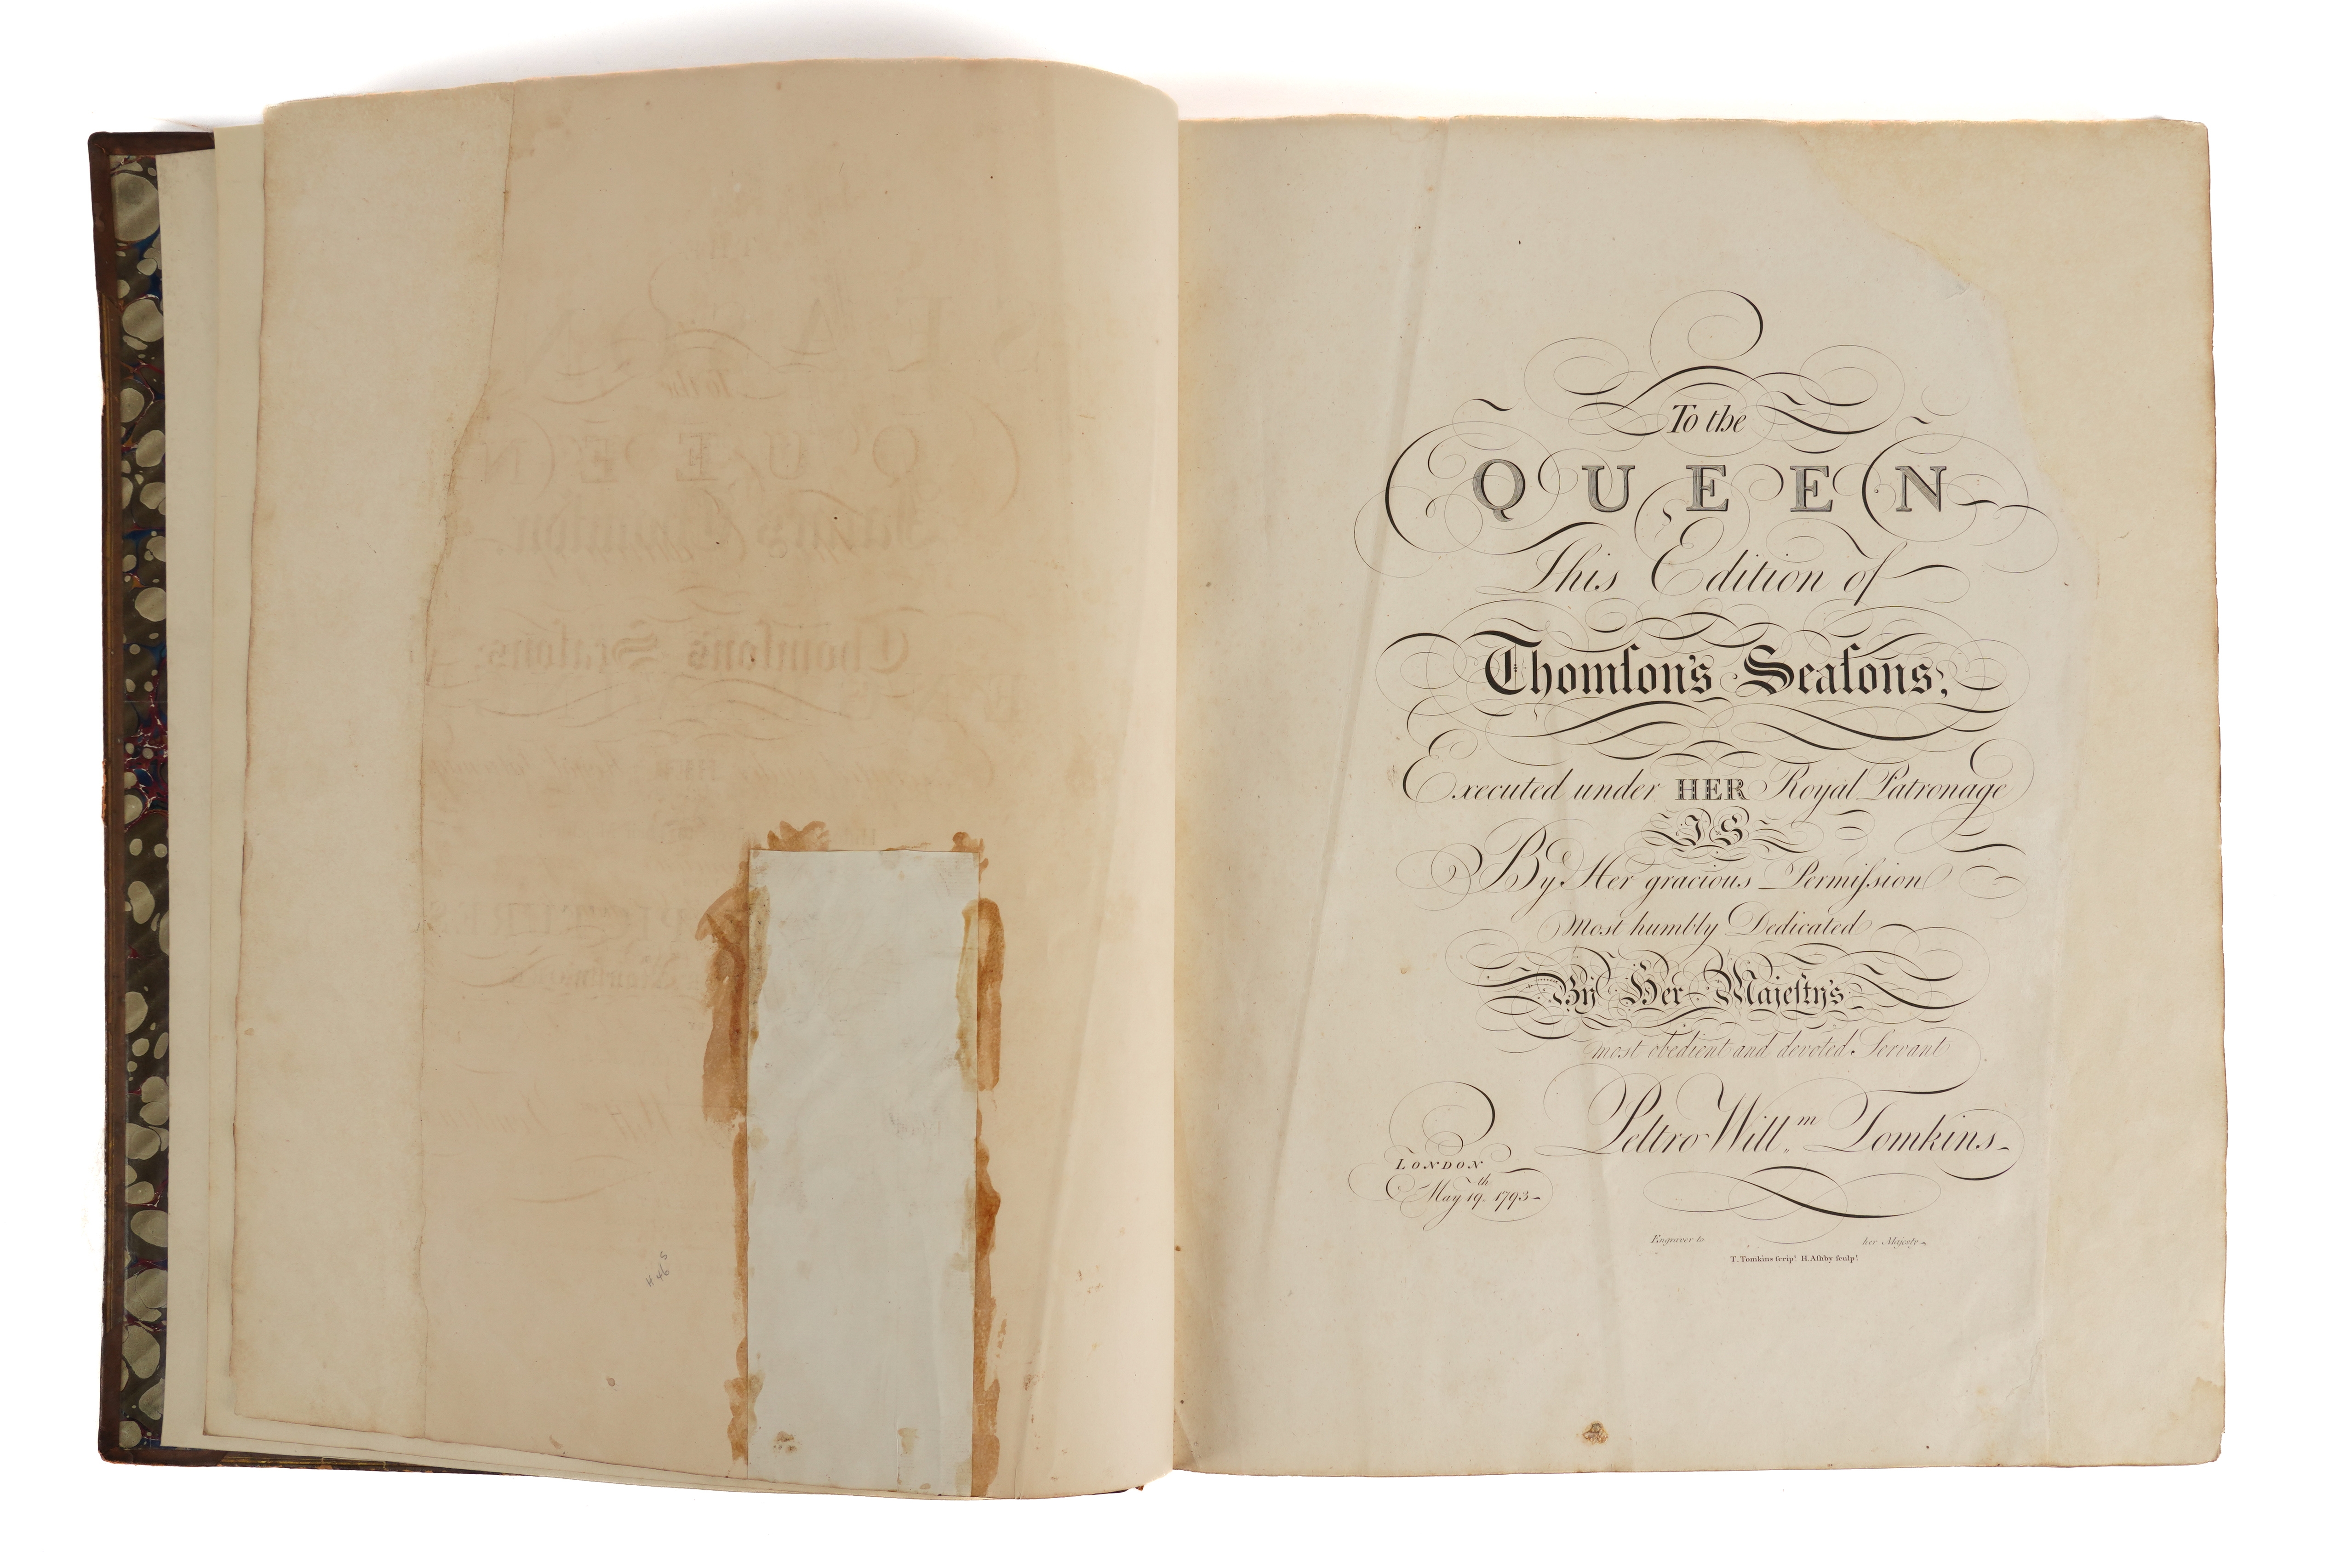 To the
QUEEN
This Edition of
Thomſon's Seaſons,
Executed under HER Royal Patronage
IS
By Her gracious Permiſsion
Most humbly Dedicated
By Her Majeſty's
most obedient and devoted Servant
Peltro Will.m Tomkins
LONDON
May 19.th 1793
Engraver to her Majesty
T. Tomkins ſcrip.t H. Aſhby ſculp.t